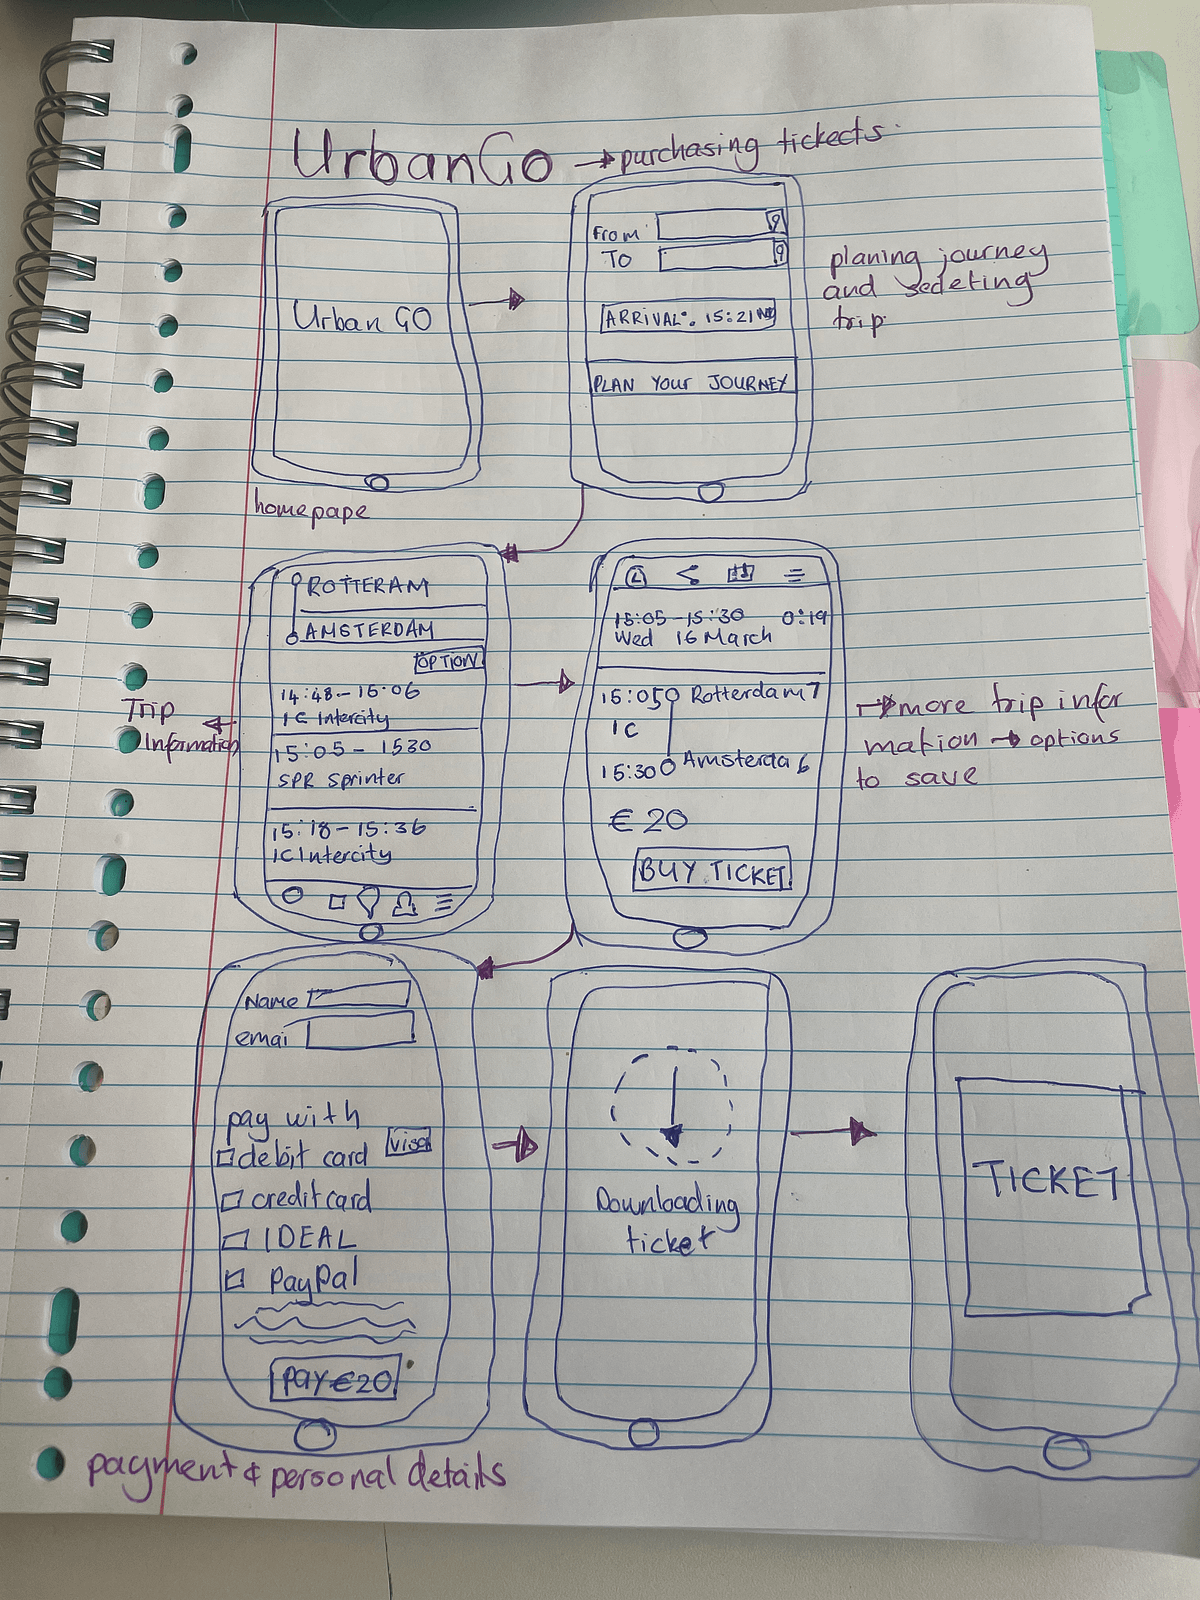 UrbanGo → purchasing tickects
Urban GO
homepape
From
To
ARRIVAL: 15:21
PLAN YOUR JOURNEY
planing journey
and sedeting
trip
ROTTERAM
AMSTERDAM
OPTION
14:48 - 15:06
IC Intercity
15:05 - 1530
SPR sprinter
15:18 - 15:36
IC Intercity
Trip
Information
15:05 - 15:30 0:19
Wed 16 March
15:05 Rotterdam 7
IC
15:30 Amsterdaa 6
€ 20
BUY TICKET
→ more trip infor
mation → options
to save
Name
emai
pay with
debit card VISA
credit card
IDEAL
PayPal
PAY €20
payment & personal details
Downloading
ticket
TICKET